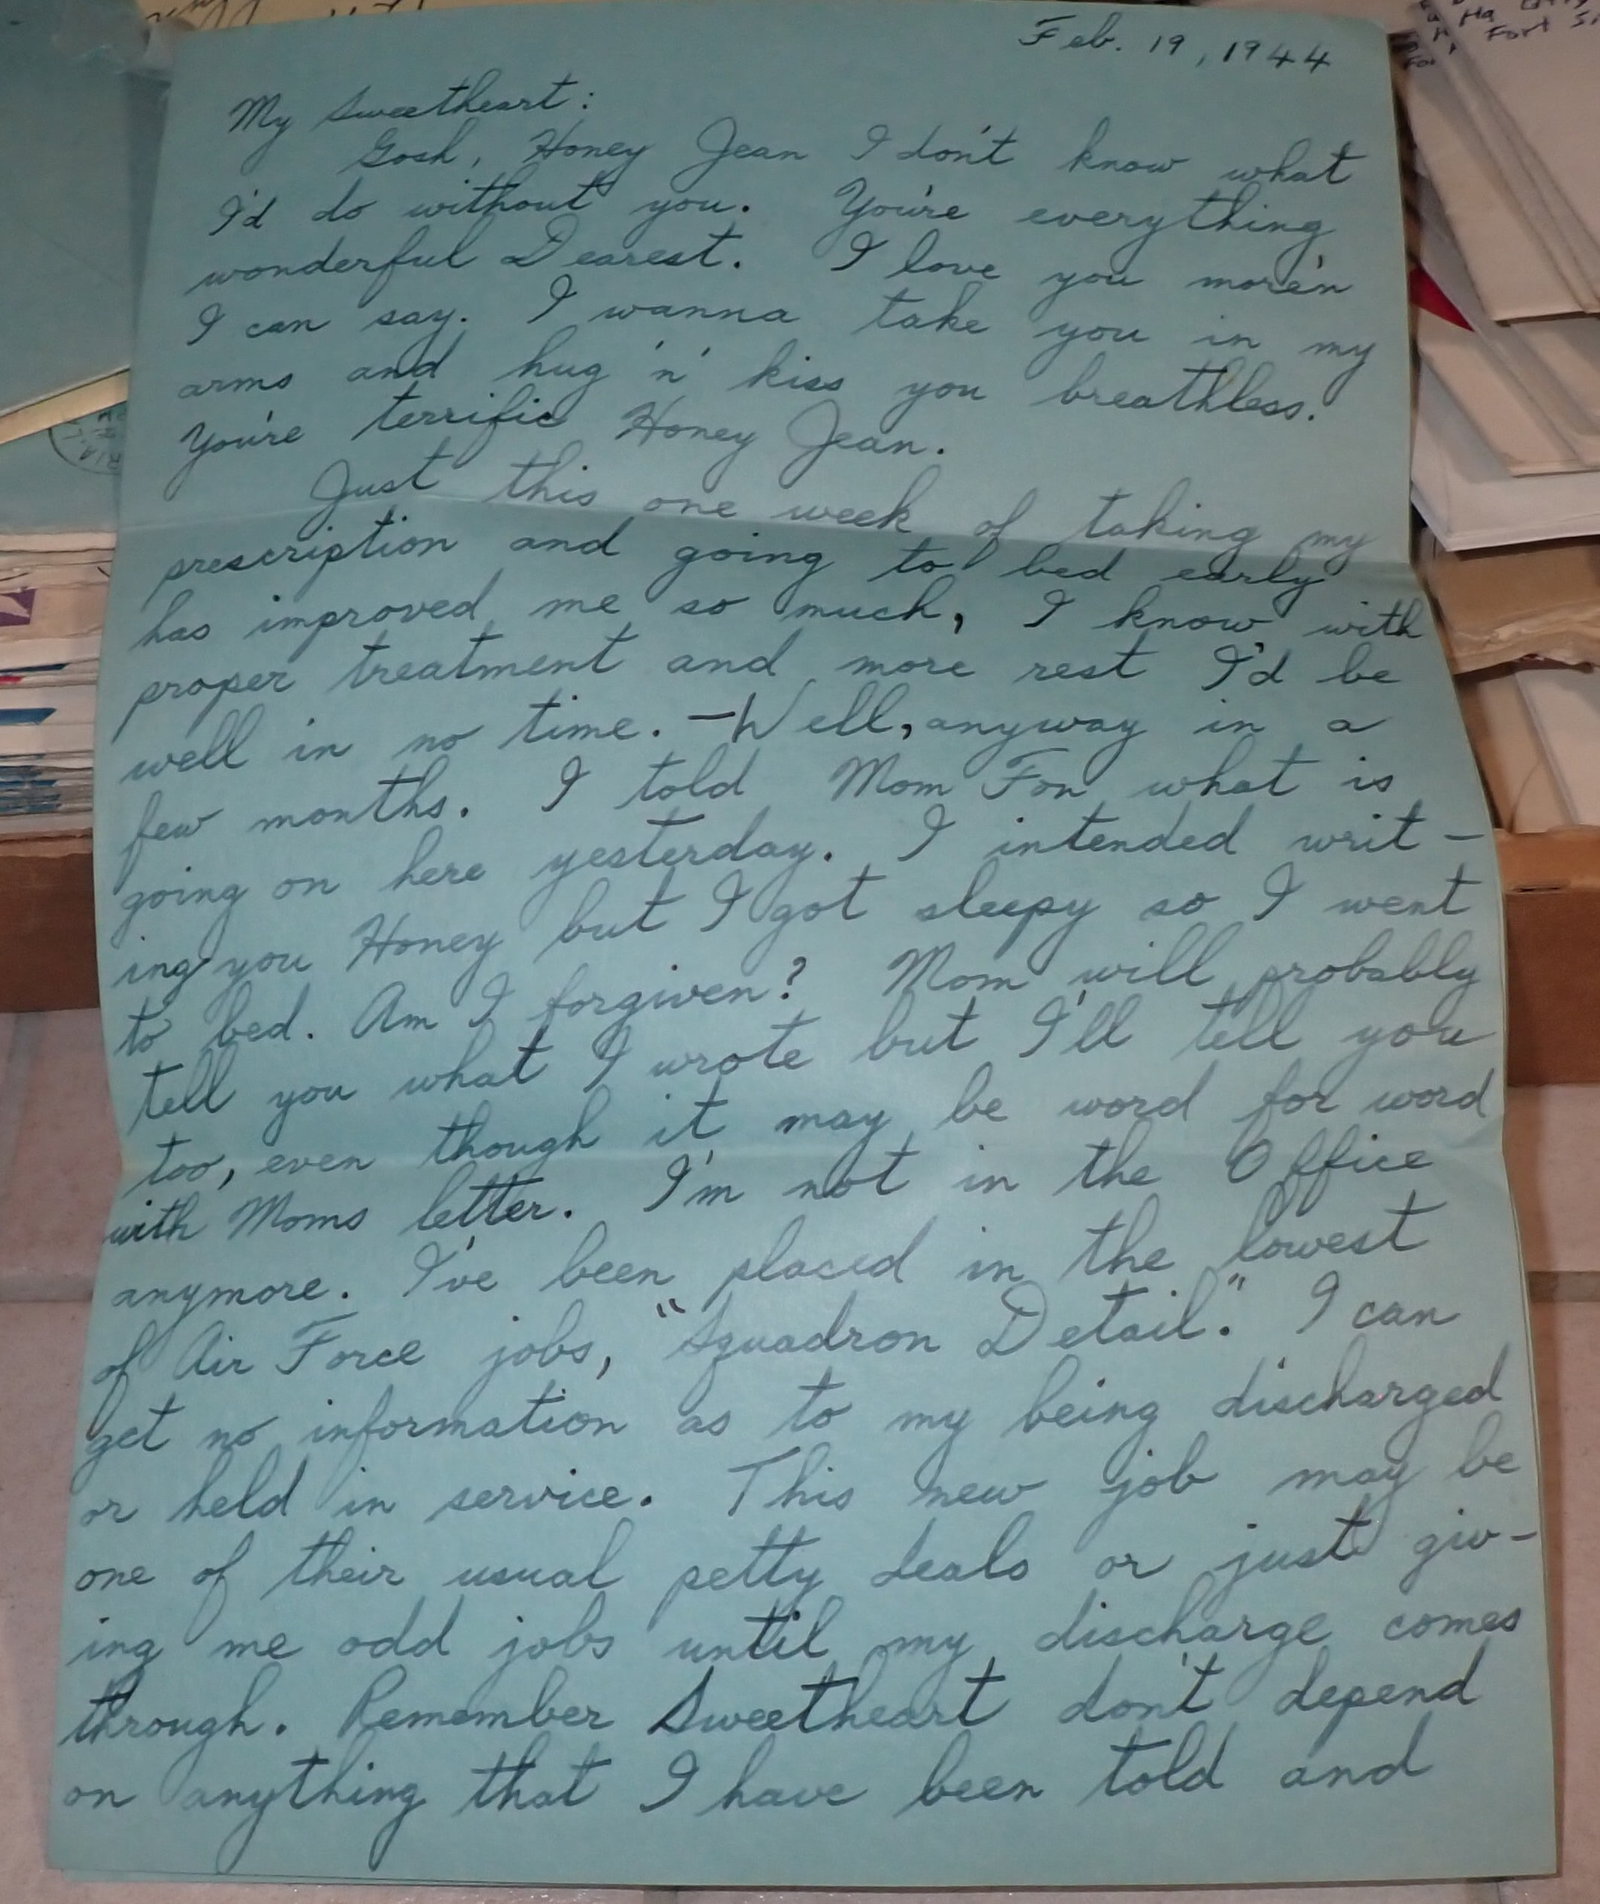 Feb. 19, 1944
My Sweetheart:
Gosh, Honey Jean I don't know what
I'd do without you. You're everything
wonderful Dearest. I love you more'n
I can say. I wanna take you in my
arms and hug 'n' kiss you breathless.
You're terrific Honey Jean.
Just this one week of taking my
prescription and going to bed early
has improved me so much, I know with
proper treatment and more rest I'd be
well in no time. – Well, anyway in a
few months. I told Mom Fon what is
going on here yesterday. I intended writ-
ing you Honey but I got sleepy so I went
to bed. Am I forgiven? Mom will probably
tell you what I wrote but I'll tell you
too, even though it may be word for word
with Moms letter. I'm not in the Office
anymore. I've been placed in the lowest
of Air Force jobs, "Squadron Detail." I can
get no information as to my being discharged
or held in service. This new job may be
one of their usual petty deals or just giv-
ing me odd jobs until my discharge comes
through. Remember Sweetheart don't depend
on anything that I have been told and
Fort